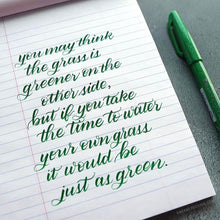 you may think
the grass is
greener on the
other side,
but if you take
the time to water
your own grass
it would be
just as green.